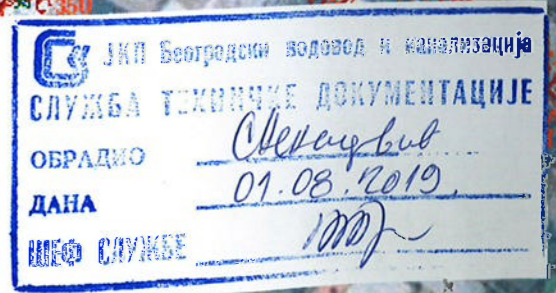 ЈКП Београдски водовод и канализација
СЛУЖБА ТЕХНИЧКЕ ДОКУМЕНТАЦИЈЕ
ОБРАДИО
ДАНА 01.08.2019.
ШЕФ СЛУЖБЕ